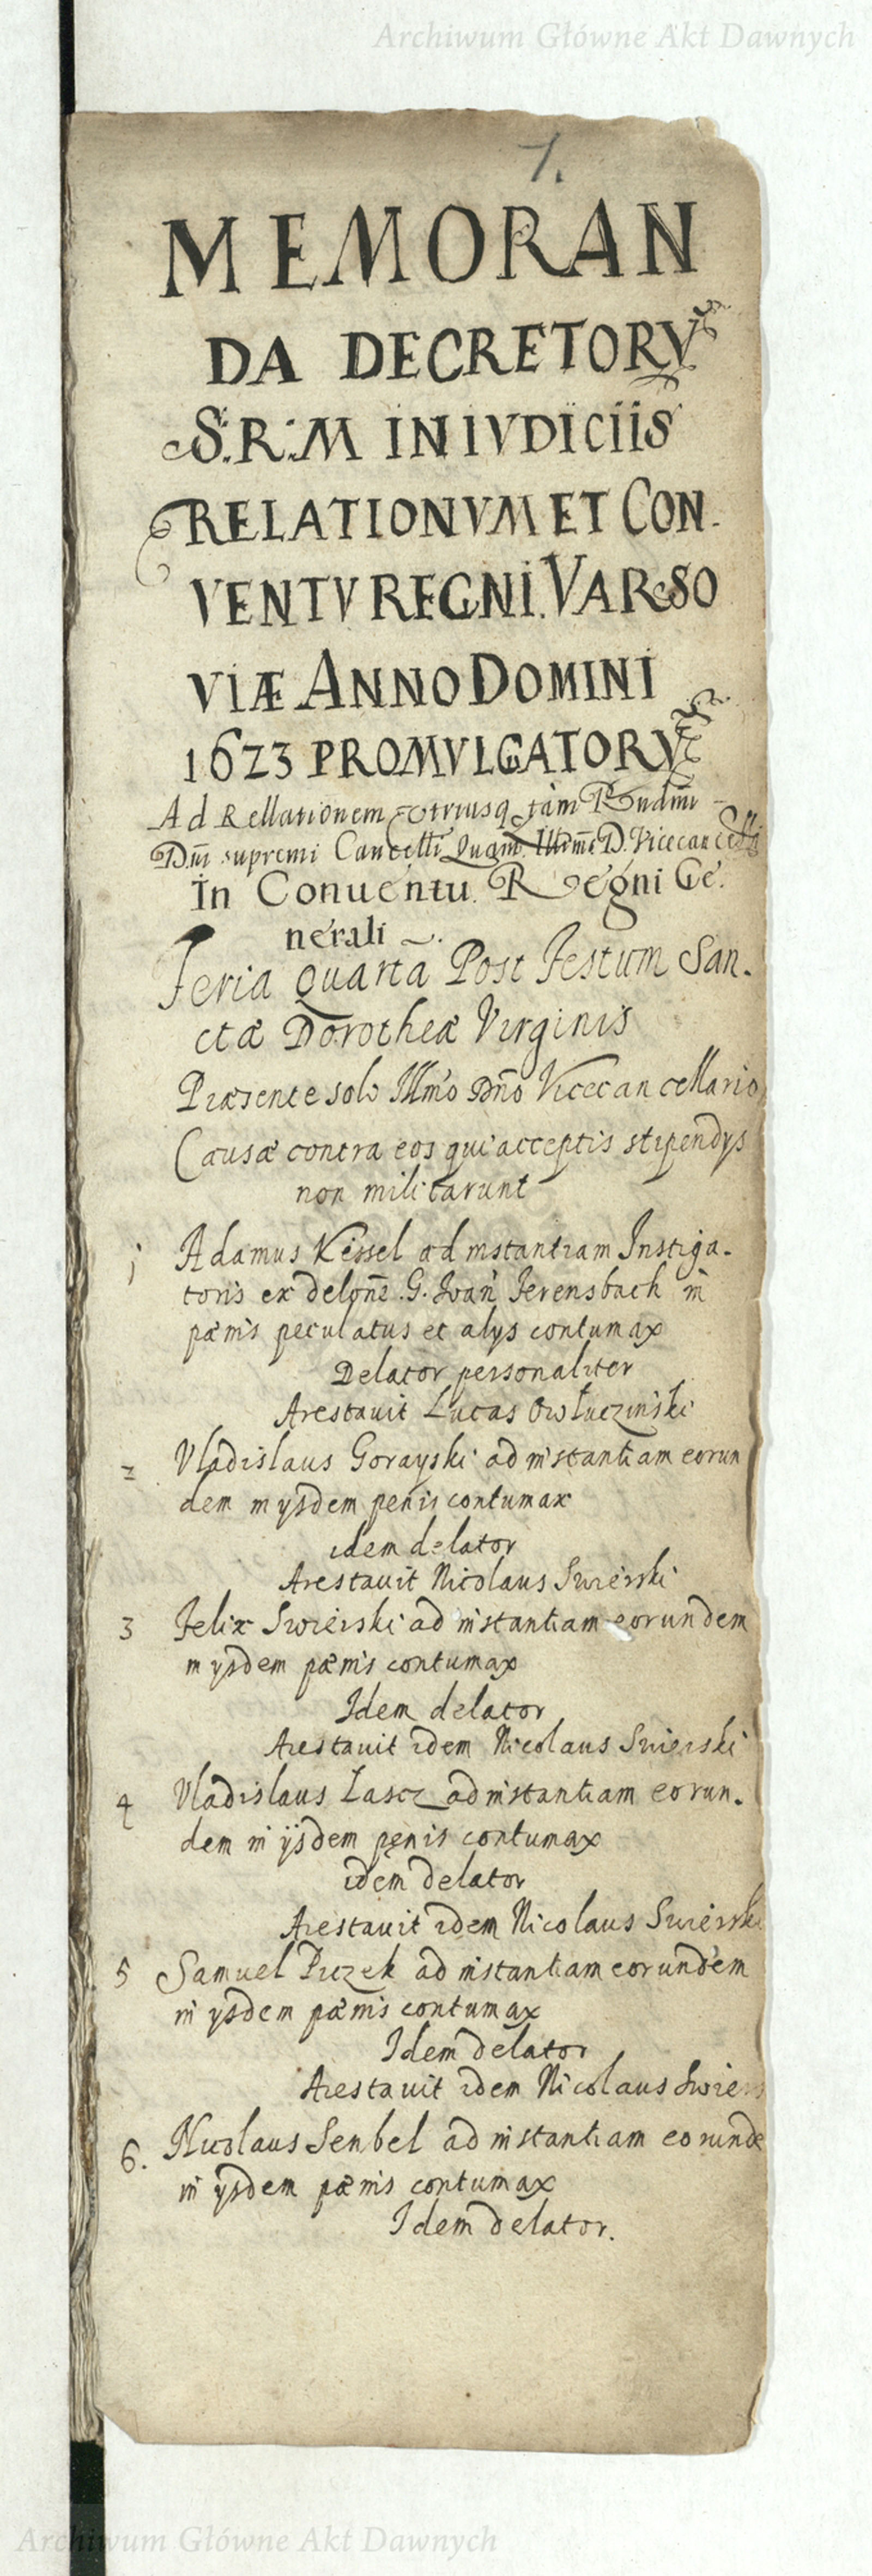 Archiwum Główne Akt Dawnych
1.
MEMORAN
DA DECRETORVM
S.R.M IN IVDICIIS
RELATIONVM ET CON.
VENTV REGNI VARSO
VIÆ ANNO DOMINI
1623 PROMVLGATORVM
Ad Rellationem utriusq tàm Rndmi
Dni supremi Cancelli Quam Illmi D. Vicecancelli
In Conuentu Regni Ge.
nerali
Feria Quarta Post Festum San.
ctæ Dorotheæ Virginis
Præsente solo Illmo Dno Vicecancellario
Causæ contra eos qui acceptis stipendys
non militarunt
1 Adamus Kissel ad instantiam Instiga.
toris ex delone G. Iwan Ferensbach in
pænis peculatus et alys contumax
Delator personaliter
Arestauit Lucas Owłuczinski
2 Vladislaus Gorayski ad instantiam eorun
dem in ysdem penis contumax
idem delator
Arestauit Nicolaus Swierski
3 Felix Swierski ad instantiam eorundem
in ysdem pænis contumax
Idem delator
Arestauit idem Nicolaus Swierski
4 Vladislaus Łascz ad instantiam eorun.
dem in ijsdem pęnis contumax
idem delator
Arestauit idem Nicolaus Swierski
5 Samuel Puzek ad instantiam eorundem
in ysdem pænis contumax
Idem delator
Arestauit idem Nicolaus Swiers
6. Nicolaus Senbel ad instantiam eorunde
in ysdem pænis contumax
Idem delator.
Archiwum Główne Akt Dawnych